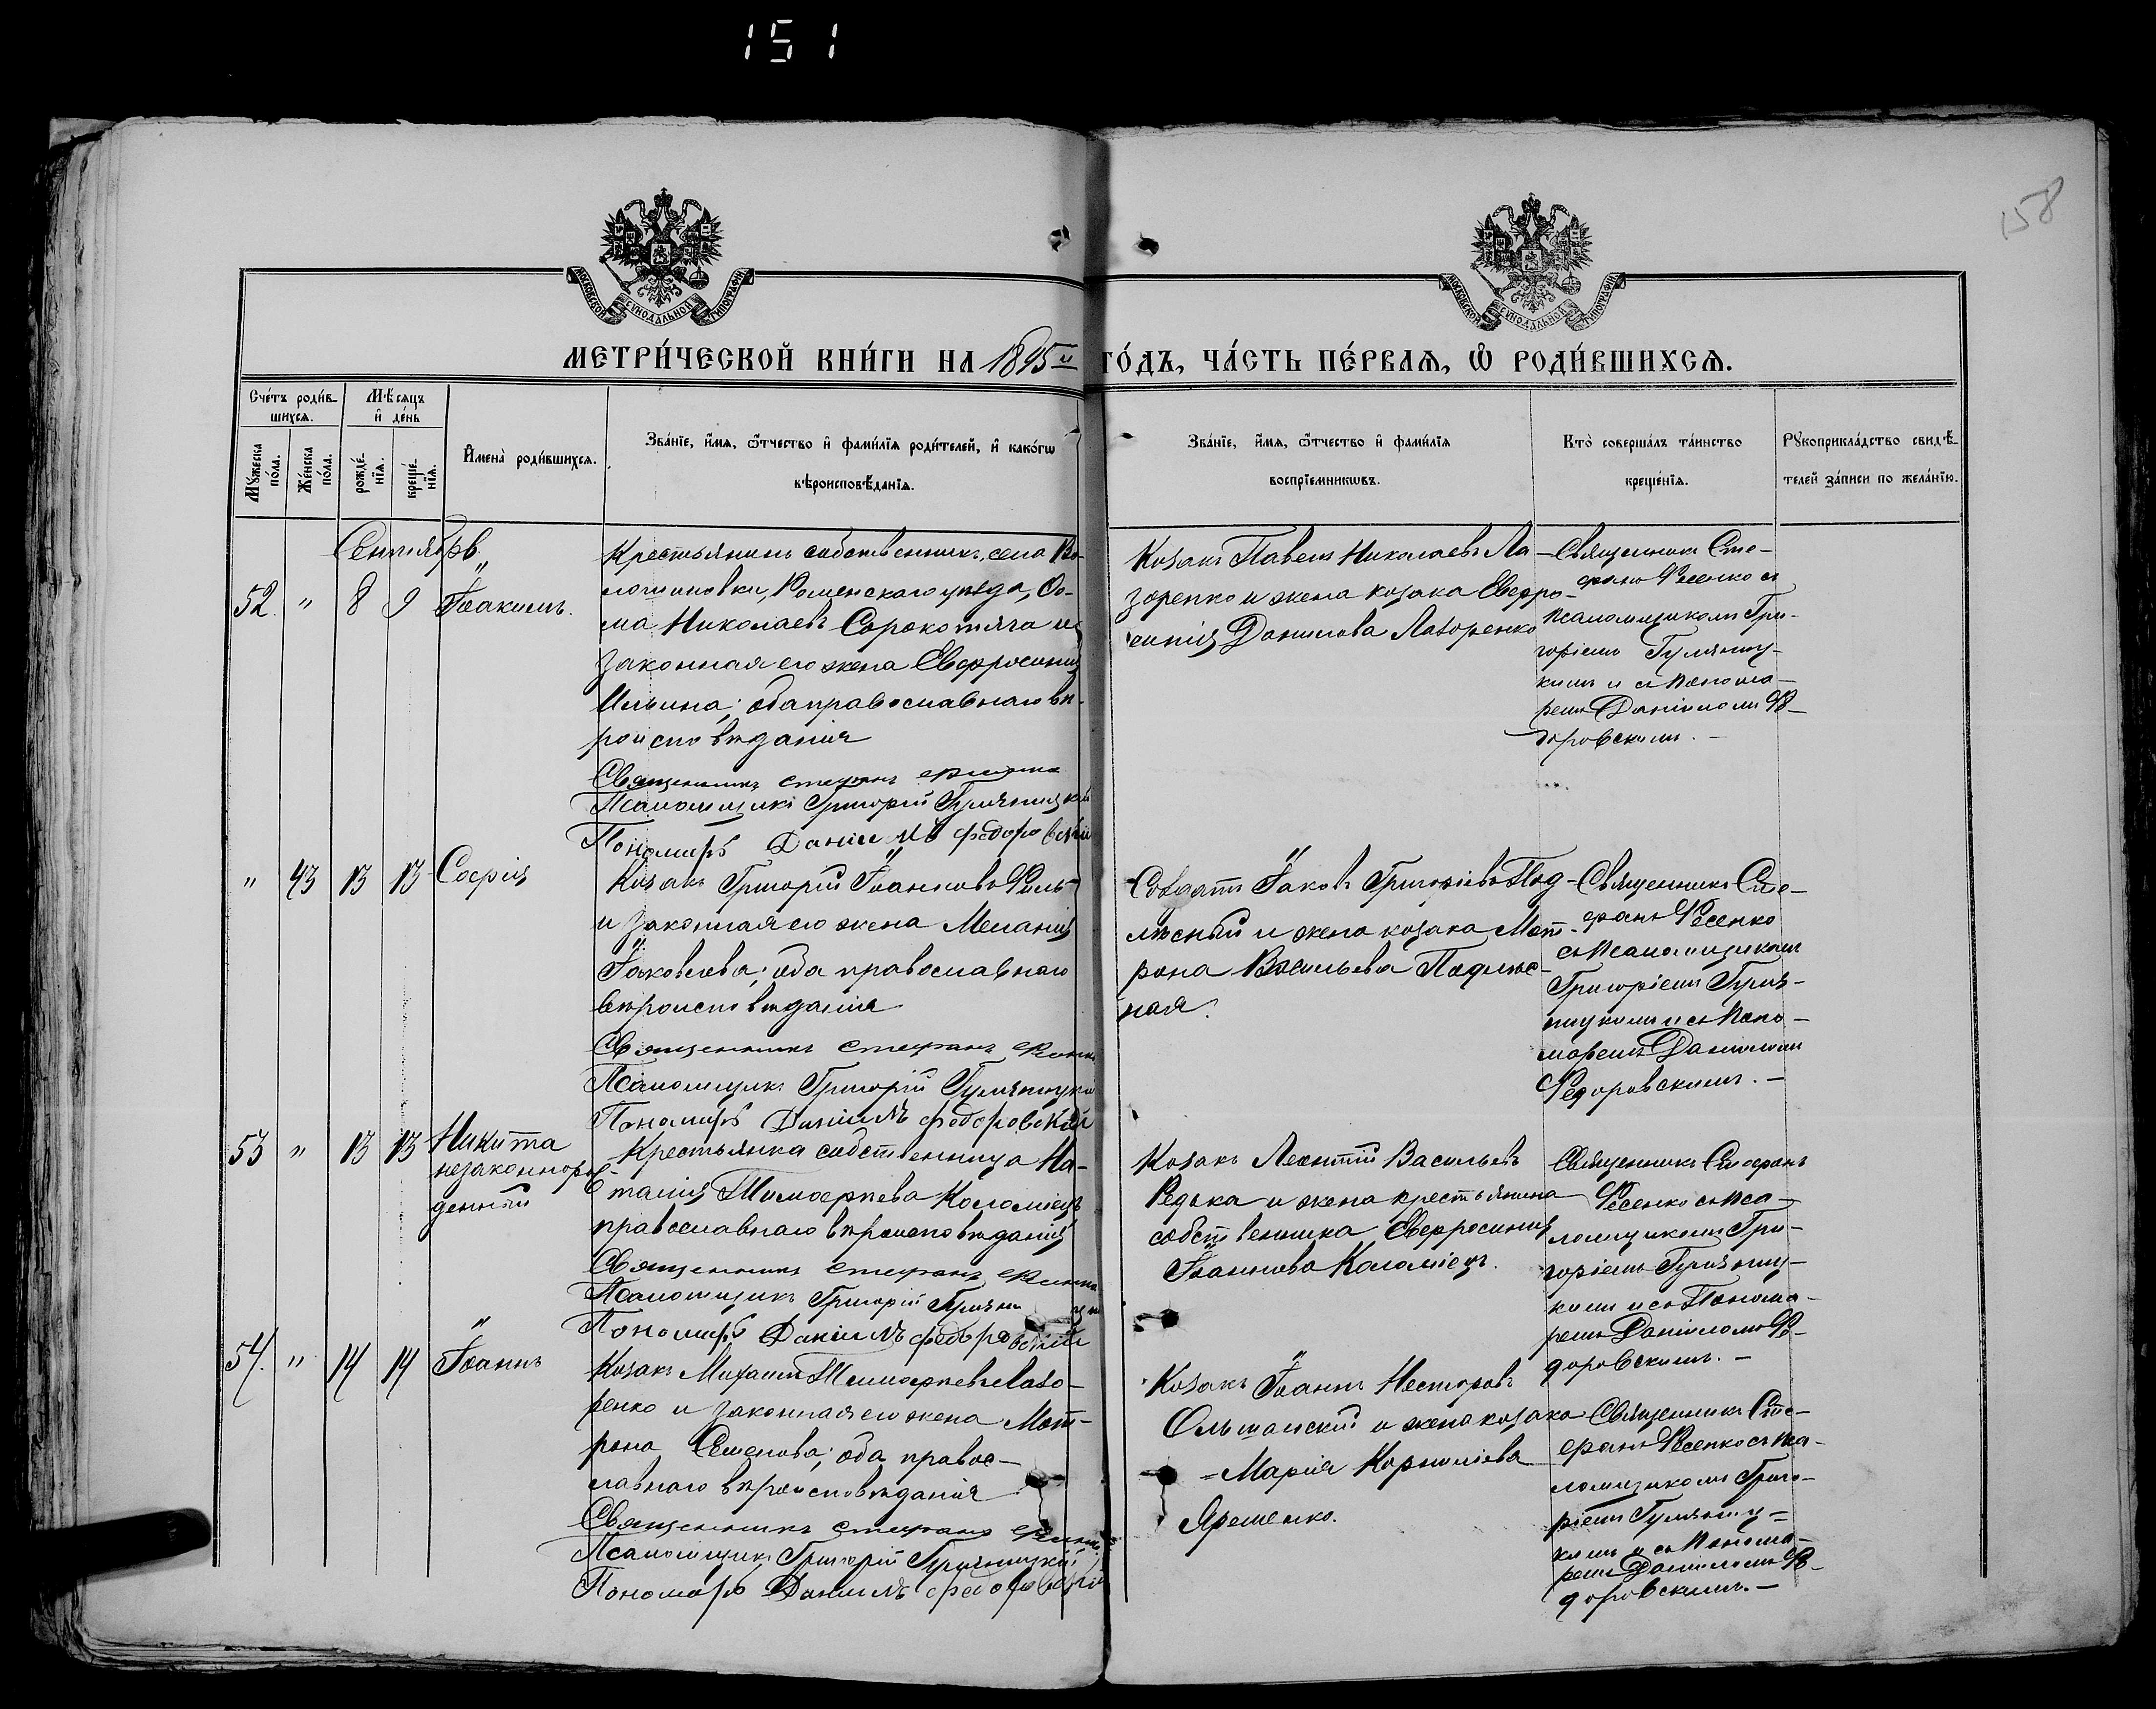 151
158
МОСКОВСКОЙ СѴНОДАЛЬНОЙ ТИПОГРАФІИ
МОСКОВСКОЙ СѴНОДАЛЬНОЙ ТИПОГРАФІИ
МЕТРИ́ЧЕСКОЙ КНИ́ГИ НА 1895й ГО́ДЪ, ЧА́СТЬ ПЕ́РВАЯ, Ѡ҆ РОДИ́ВШИХСЯ.
Сче́тъ роди́в-
шихся.
Мѣ́сяцъ
и҆ де́нь
Мꙋ́жеска
по́ла.
Же́нска
по́ла.
рожде́-
нїя.
креще́-
нїя.
И҆мена̀ роди́вшихся.
Зва́нїе, и҆́мя, ѻ҆́тчество и҆ фами́лїя роди́телей, и҆ како́гѡ
вѣроисповѣ́данїя.
Зва́нїе, и҆́мя, ѻ҆́тчество и҆ фами́лїя
воспрїемникѡвъ.
Кто̀ соверша́лъ та́инство
креще́нїя.
Рꙋкоприкла́дство свидѣ́-
телей за́писи по жела́нїю.
Сентябрь
52 " 8 9 Іоакимъ.
Крестьянинъ собственникъ, села
Роменскаго уѣзда, Ѳо-
ма Николаевъ Сорокотяга и
законная его жена Евфросинія
Ильина; оба православнаго вѣ-
роисповѣданія
Священникъ Стефанъ Фесенко
Псаломщикъ Григорій Гуляницкій
Пономарь Даніилъ Федоровскій
Козакъ Павелъ Николаевъ Ла-
зоренко и жена козака Евфро-
синія Данилова Лазоренко
Священникъ Сте-
фанъ Фесенко съ
псаломщикомъ Гри-
горіемъ Гуляниц-
кимъ и съ понома-
ремъ Даніиломъ Фе-
доровскимъ.
" 43 13 13 Софія
Козакъ Григорій Іоанновъ
и законная его жена Меланія
Іаковлева; оба православнаго
вѣроисповѣданія
Священникъ Стефанъ Фесенко
Псаломщикъ Григорій Гуляницкій
Пономарь Даніилъ Федоровскій
Солдатъ Іаковъ Григоріевъ Под-
лѣсный и жена козака Мат-
рона Васильева Подлѣс-
ная.
Священникъ Сте-
фанъ Фесенко
съ псаломщикомъ
Григоріемъ Гуля-
ницкимъ и съ поно-
маремъ Даніиломъ
Федоровскимъ.
53 " 13 13 Никита
незаконнорож-
денный
Крестьянка собственница На-
талія Тимофеева Коломіецъ
православнаго вѣроисповѣданія
Священникъ Стефанъ Фесенко
Псаломщикъ Григорій Гуляницкій
Пономарь Даніилъ Федоровскій
Козакъ Леонтій Васильевъ
Редька и жена крестьянина
собственника Евфросинія
Іоаннова Коломіецъ.
Священникъ Стефанъ
Фесенко съ пса-
ломщикомъ Гри-
горіемъ Гуляниц-
кимъ и съ Понома-
ремъ Даніиломъ Фе-
доровскимъ.
54. " 14 14 Іоаннъ
Козакъ Михаилъ Тимофеевъ Лазо-
ренко и законная его жена Мат-
рона Семенова; оба правос-
лавнаго вѣроисповѣданія
Священникъ Стефанъ Фесенко
Псаломщикъ Григорій Гуляницкій
Пономарь Даніилъ Федоровскій
Козакъ Іоаннъ Несторовъ
Ольшанскій и жена козака
Марія Корниліева
Яременко.
Священникъ Сте-
фанъ Фесенко съ пса-
ломщикомъ Григо-
ріемъ Гуляниц-
кимъ и съ понома-
ремъ Даніиломъ Фе-
доровскимъ.